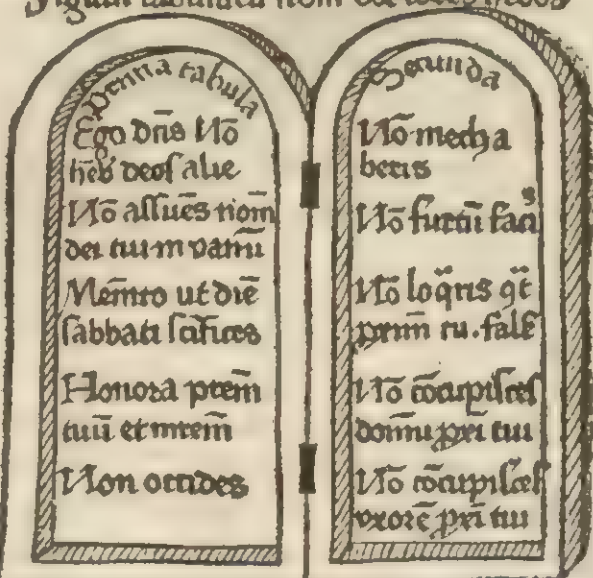 Prima tabula
Ego dn̄s Nō
hēb deos alie
Nō assūēs nom̄
dei tuu in vanū
Mem̄to ut diē
sabbati scīfices
Honora ptem̄
tuū et mrem̄
Non occides
Secunda
Nō mecha
beris
Nō furtū facis
Nō loq̄ris qͣt
prim̄ tu. fals̄
Nō cōcupisces
domū pxi tui
Nō cōcupisces
vxorē pxi tui